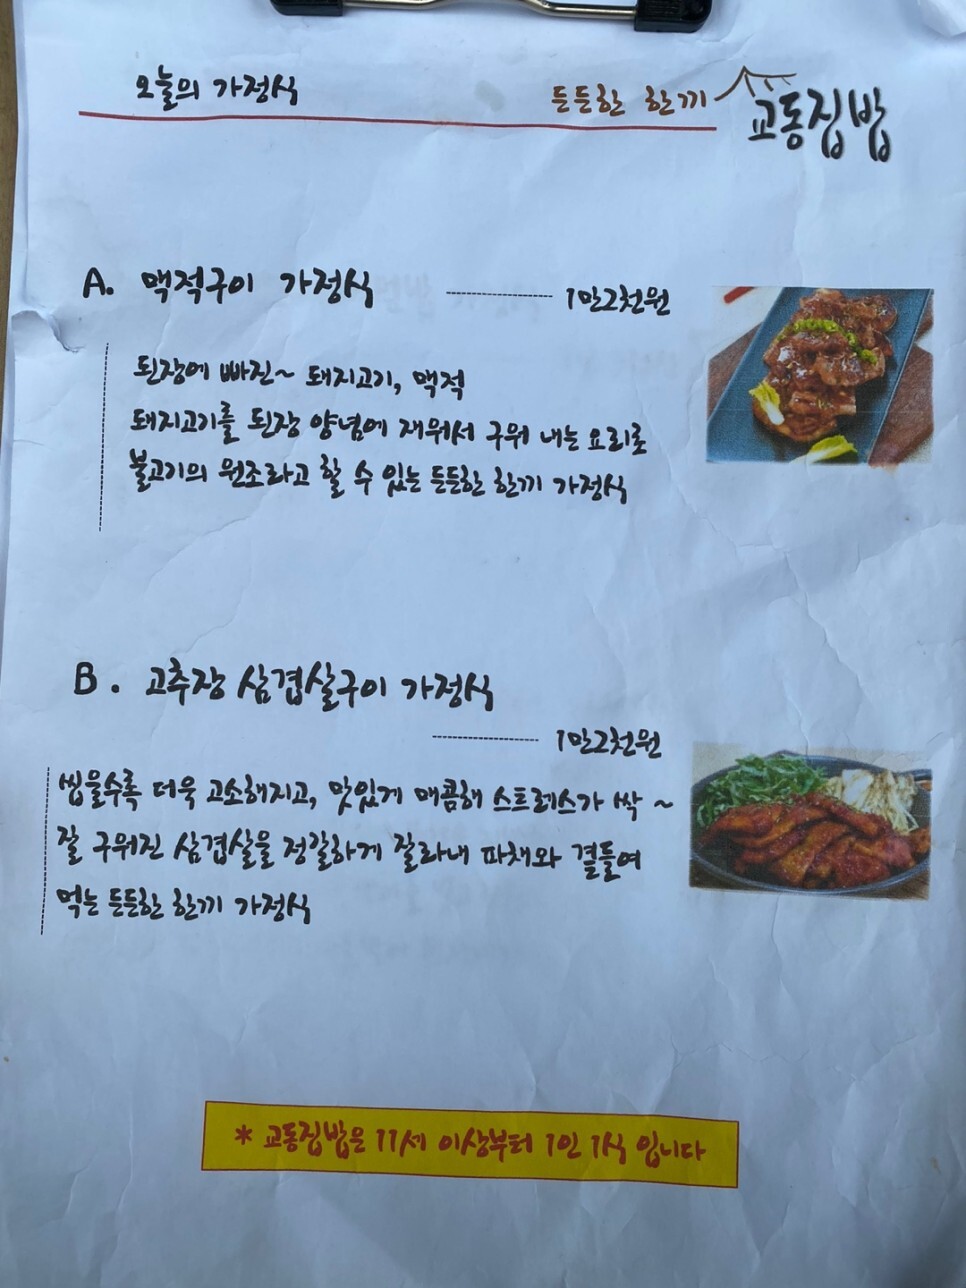 오늘의 가정식
든든한 한끼
교동집밥
A. 맥적구이 가정식
1만2천원
된장에 빠진~ 돼지고기, 맥적
돼지고기를 된장 양념에 재워서 구워 내는 요리로
불고기의 원조라고 할 수 있는 든든한 한끼 가정식
B. 고추장 삼겹살구이 가정식
1만2천원
씹을수록 더욱 고소해지고, 맛있게 매콤해 스트레스가 싹~
잘 구워진 삼겹살을 정갈하게 잘라내 파채와 곁들여
먹는 든든한 한끼 가정식
* 교동집밥은 11세 이상부터 1인 1식 입니다